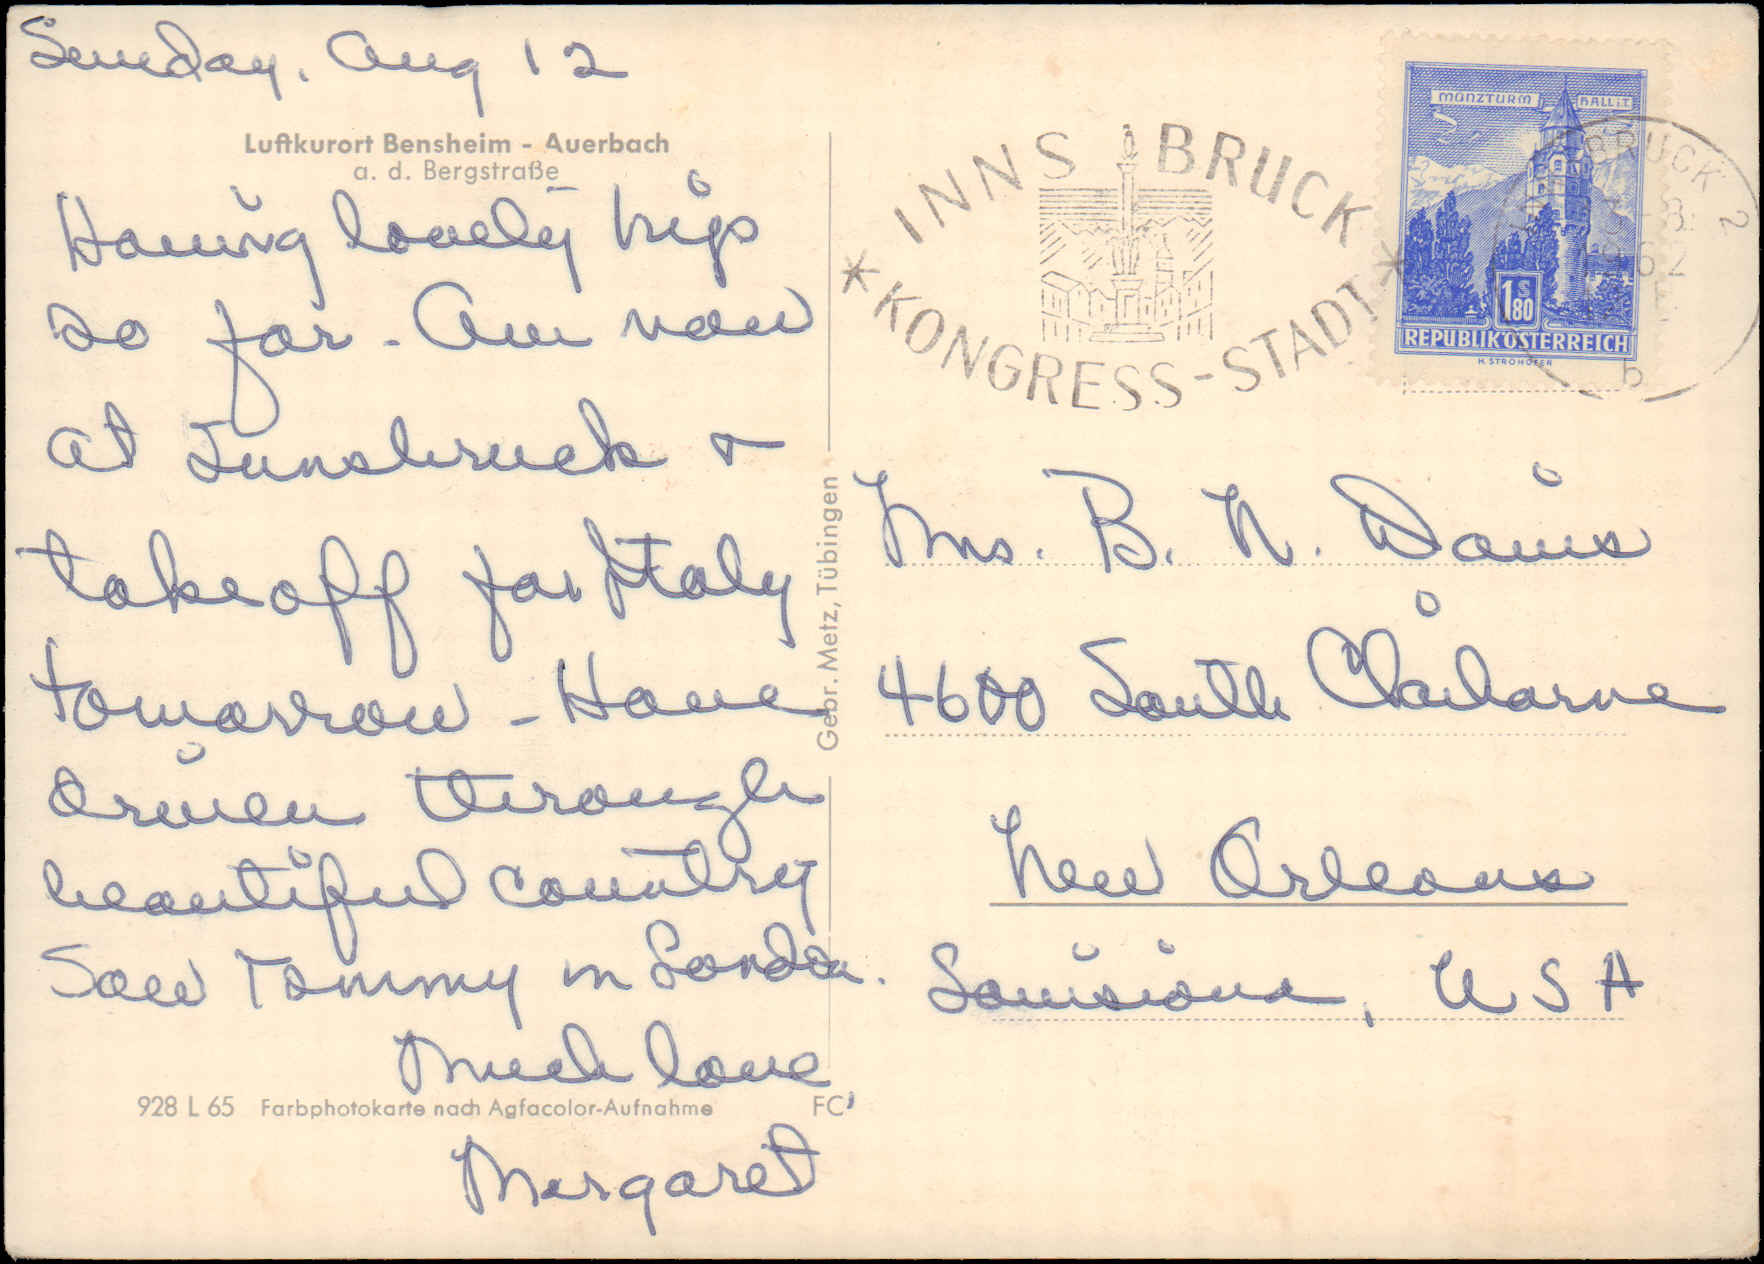 Sunday. Aug 12
Luftkurort Bensheim - Auerbach
a. d. Bergstraße
Having lovely trip
so far - Am now
at Innsbruck &
take off for Italy
tomorrow - Have
driven through
beautiful country
Saw Tommy in London.
Much love
Margaret
928 L 65 Farbphotokarte nach Agfacolor-Aufnahme FC
Gebr. Metz, Tübingen
INNSBRUCK
* KONGRESS-STADT *
MÜNZTURM HALL i.T.
1 S 80
REPUBLIK ÖSTERREICH
H. STROHOFER
BRUCK 2
62
b
Mrs. B. N. Davis
4600 South Claiborne
New Orleans
Louisiana, USA